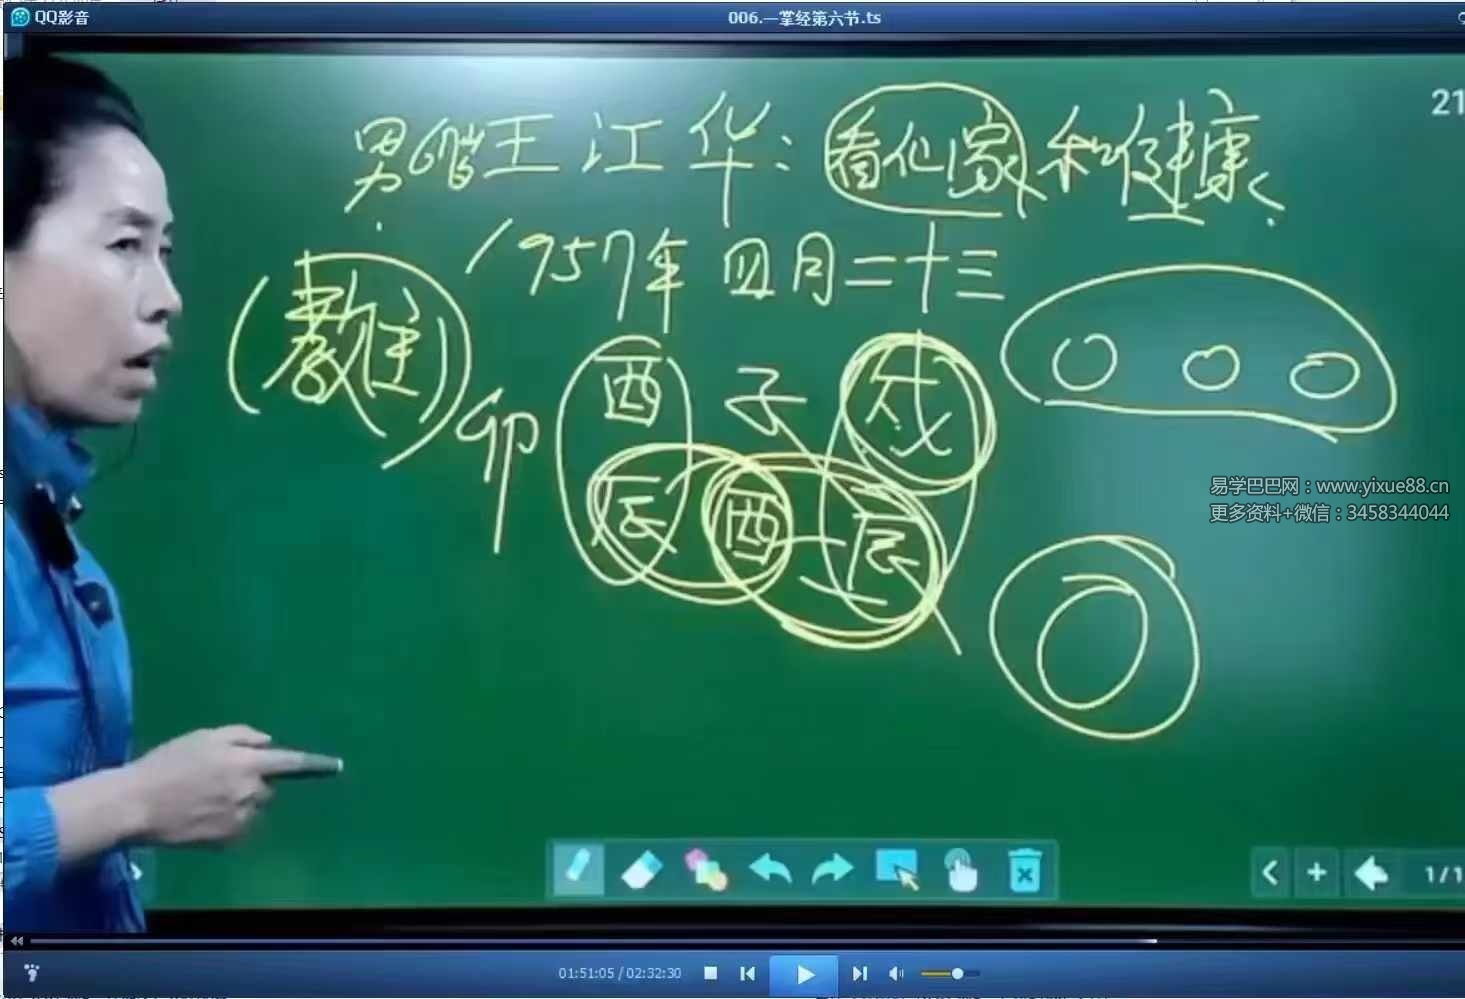 QQ影音
006.一掌经第六节.ts
21
男 王江华：看仙家和健康
1957年四月二十三
(教主)
卯 酉 子 戌
辰 酉 辰
易学巴巴网：www.yixue88.cn
更多资料+微信：3458344044
1/1
01:51:05 / 02:32:30